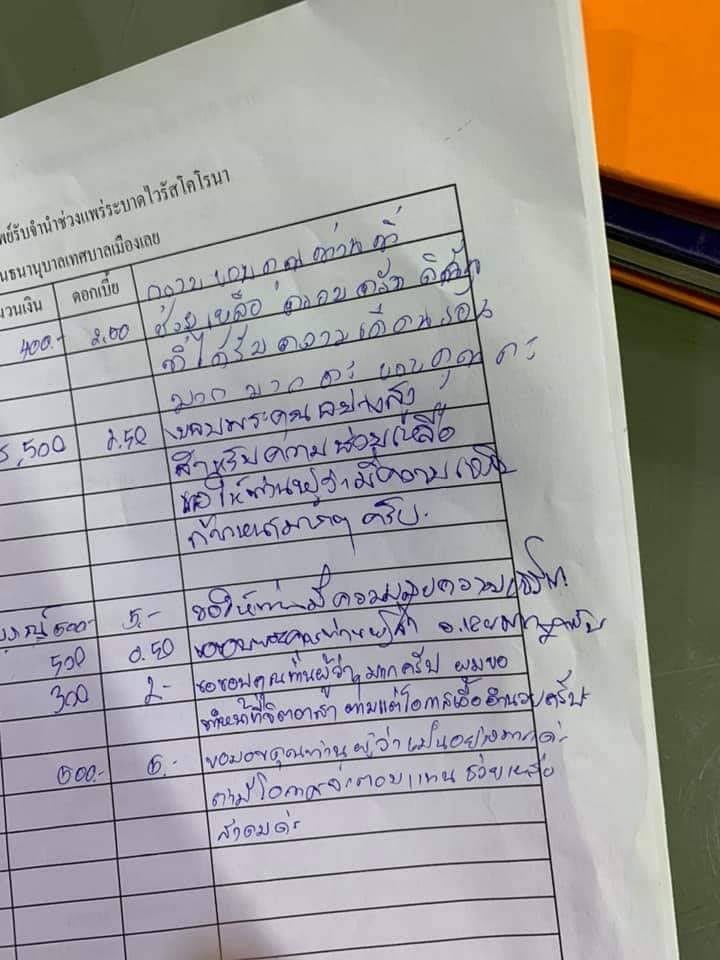 พย์รับจำนำช่วงแพร่ระบาดไวรัสโคโรนา
นธนานุบาลเทศบาลเมืองเลย
นวนเงิน ดอกเบี้ย
กราบขอบคุณท่านที่
400.- 2.00 ช่วยเหลือ
ที่ได้รับความเดือดร้อน
มาก มาก ค่ะ ขอบคุณ ค่ะ
5,500 2.50 ขอบพระคุณอย่างสูง
สำหรับความช่วยเหลือ
ขอให้ท่านผู้ว่ามีความเจริญ
ก้าวหน้ามากๆ ครับ.
500- 5.- ขอให้ท่านมี
500 0.50 ขอขอบพระคุณท่านผู้ว่า จ.เลยมากๆครับ
300 2- ขอขอบคุณท่านผู้ว่าๆมากครับ ผมขอ
ทำหน้าที่จิตอาสา ตามแต่โอกาสเอื้ออำนวยครับ
500.- 5.- ขอบคุณท่านผู้ว่าเป็นอย่างมากค่ะ
ถ้ามีโอกาสจะตอบแทน ช่วยเหลือ
สังคมค่ะ